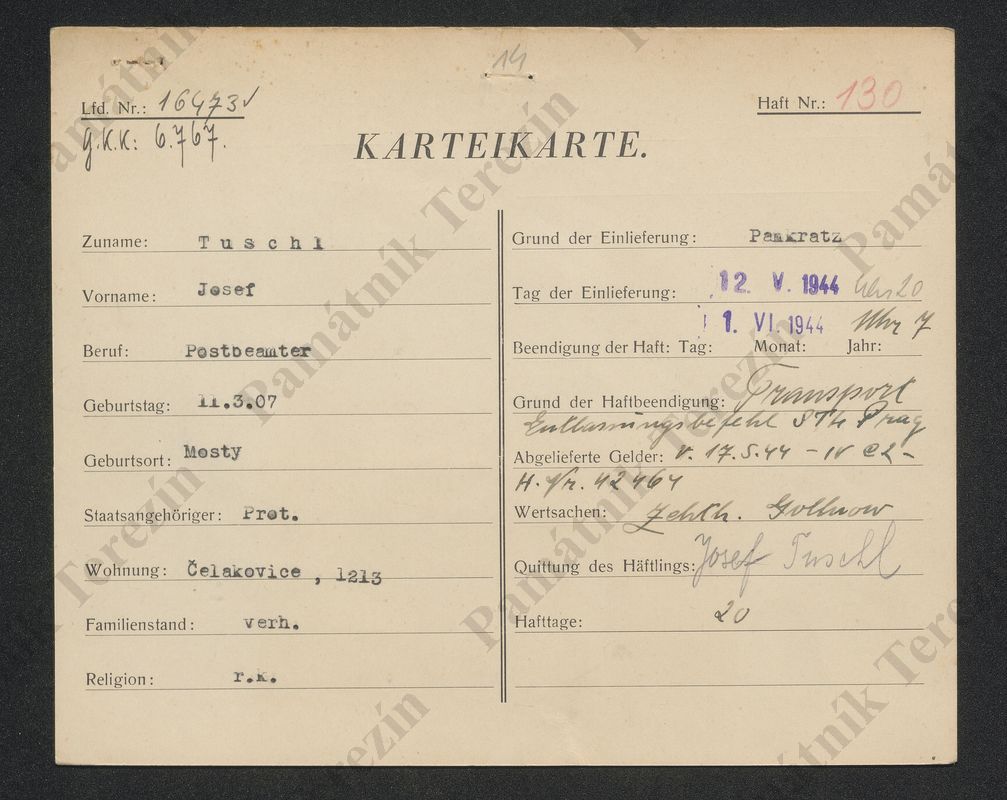 14
Lfd. Nr.: 16473✓
g.K.K: 6.767.
Haft Nr.: 130
KARTEIKARTE.
Zuname: Tuschl
Vorname: Josef
Beruf: Postbeamter
Geburtstag: 11.3.07
Geburtsort: Mosty
Staatsangehöriger: Prot.
Wohnung: Čelakovice, 1213
Familienstand: verh.
Religion: r.k.
Grund der Einlieferung: Pankratz
Tag der Einlieferung: 12. V. 1944 Uhr 20
1. VI. 1944 Uhr 7
Beendigung der Haft: Tag: Monat: Jahr:
Grund der Haftbeendigung: Transport
Entlassungsbefehl Prag
Abgelieferte Gelder: v. 17.5.44 - IV C2 -
H. Nr. 42464
Wertsachen: Gollnow
Quittung des Häftlings: Josef Tuschl
Hafttage: 20
Památník Terezín
Památník Terezín
Památník Terezín
Památník Terezín